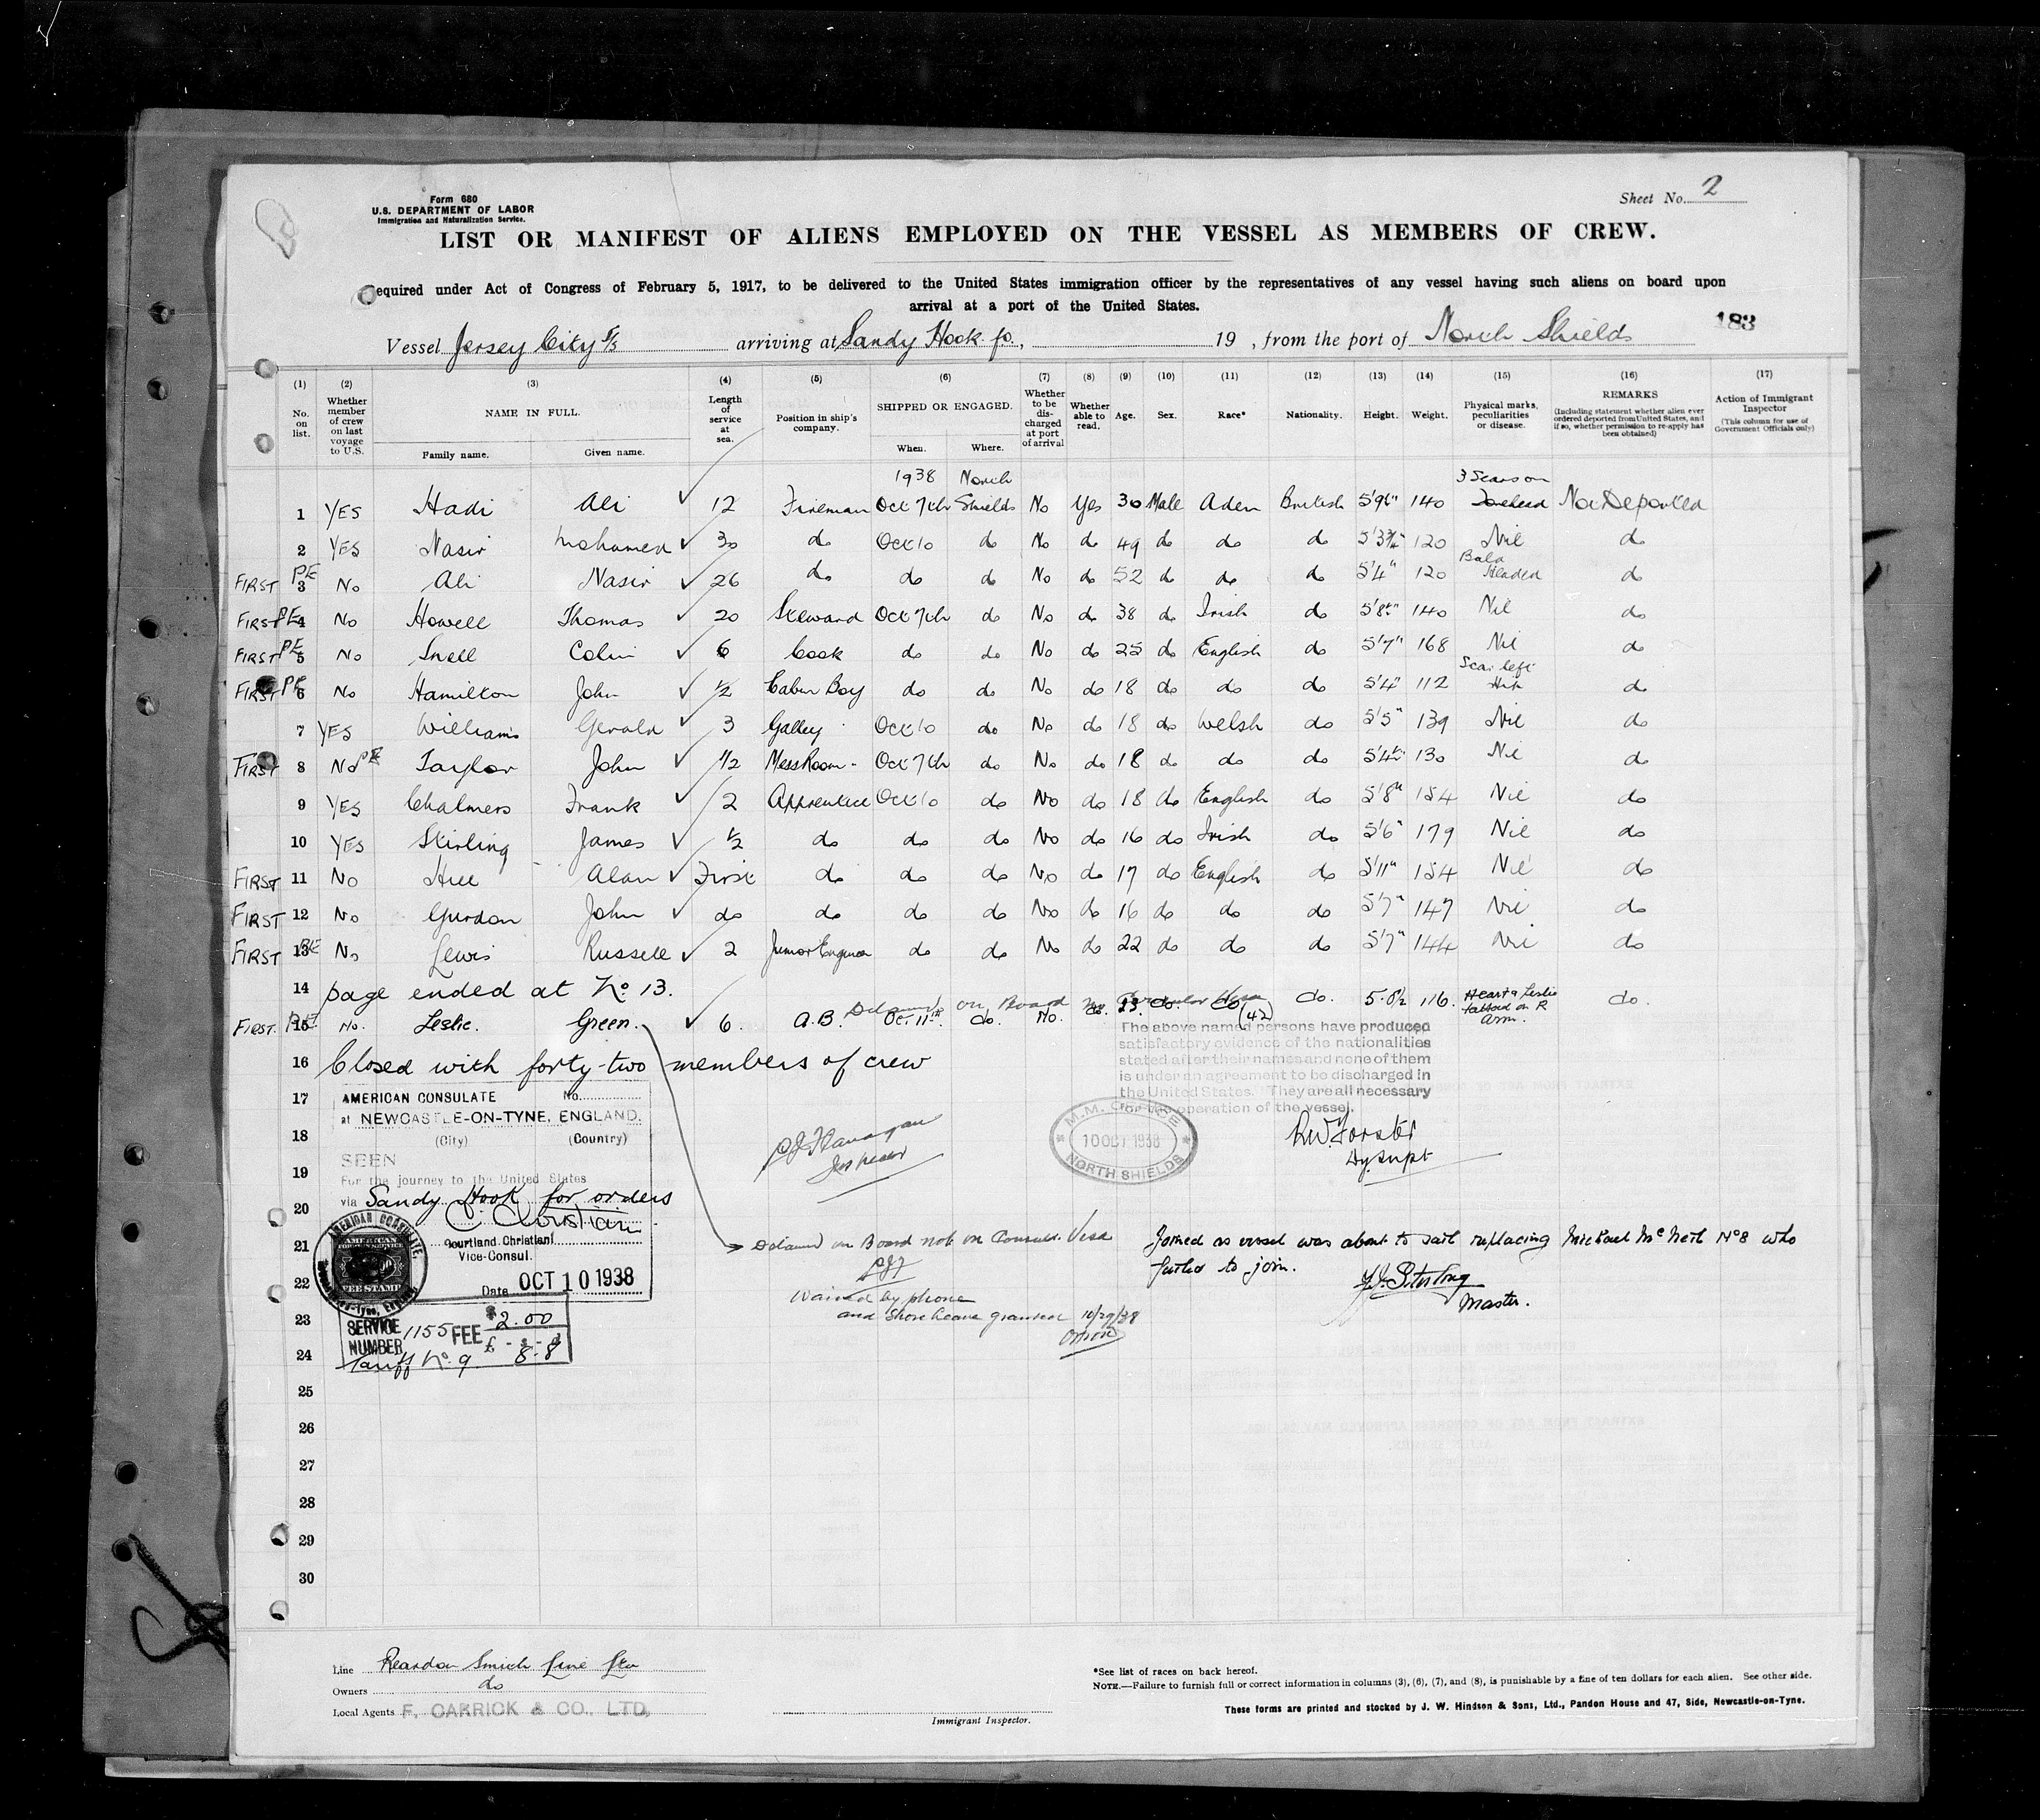 Form 680
U.S. DEPARTMENT OF LABOR
Immigration and Naturalization Service.
Sheet No. 2
LIST OR MANIFEST OF ALIENS EMPLOYED ON THE VESSEL AS MEMBERS OF CREW.
equired under Act of Congress of February 5, 1917, to be delivered to the United States immigration officer by the representatives of any vessel having such aliens on board upon
arrival at a port of the United States.
183
Vessel Jersey City S/S arriving at Sandy Hook fo., 19 , from the port of North Shields
(1) (2) (3) (4) (5) (6) (7) (8) (9) (10) (11) (12) (13) (14) (15) (16) (17)
No. on list.
Whether member of crew on last voyage to U.S.
NAME IN FULL.
Family name. Given name.
Length of service at sea.
Position in ship's company.
SHIPPED OR ENGAGED.
When. Where.
Whether to be discharged at port of arrival
Whether able to read.
Age.
Sex.
Race*
Nationality.
Height.
Weight.
Physical marks, peculiarities or disease.
REMARKS
(Including statement whether alien ever ordered deported from United States, and if so, whether permission to re-apply has been obtained)
Action of Immigrant Inspector
(This column for use of Government Officials only)
1938 North 3 Scars on
1 YES Hadi Ali ✓ 12 Fireman Oct 7th Shields No Yes 30 Male Aden British 5'9½" 140 Forehead Not Deported
2 YES Nasir Mohamed ✓ 30 do Oct 10 do No do 49 do do do 5'3¾" 120 Nil do
FIRST PE 3 No Ali Nasir ✓ 26 do do do No do 52 do do do 5'4" 120 Bald Headed do
FIRST PE 4 No Howell Thomas ✓ 20 Steward Oct 7th do No do 38 do Irish do 5'8½" 140 Nil do
FIRST PE 5 No Snell Colin ✓ 6 Cook do do No do 25 do English do 5'7" 168 Nil do
FIRST PE 6 No Hamilton John ✓ ½ Cabin Boy do do No do 18 do do do 5'4" 112 Scar left do
7 YES Williams Gerald ✓ 3 Galley Oct 10 do No do 18 do Welsh do 5'5" 139 Nil do
FIRST 8 No PE Taylor John ✓ 1/2 Mess Room - Oct 7th do No do 18 do do do 5'4½" 130 Nil do
9 YES Chalmers Frank ✓ 2 Apprentice Oct 10 do No do 18 do English do 5'8" 154 Nil do
10 YES Stirling James ✓ ½ do do do No do 16 do Irish do 5'6" 179 Nil do
FIRST 11 No Hill Alan ✓ First do do do No do 17 do English do 5'11" 154 Nil do
FIRST 12 No Gurdon John ✓ do do do do No do 16 do do do 5'7" 147 Nil do
FIRST 13 PE No Lewis Russell ✓ 2 Junior Engineer do do No do 22 do do do 5'7" 144 Nil do
14 page ended at No. 13.
on Board
FIRST. PE 15 No. Leslie. Green. ✓ 6. A.B. Oct 11th do. No. do. 23. do. do. (42) do. 5.8½ 116. Heart & Leslie tattood on R Arm. do.
The above named persons have produced
satisfactory evidence of the nationalities
stated after their names and none of them
is under an agreement to be discharged in
the United States. They are all necessary
for the operation of the vessel.
16 Closed with forty-two members of crew
17
18
19
20
21
22
23
24
25
26
27
28
29
30
AMERICAN CONSULATE No.
at NEWCASTLE-ON-TYNE, ENGLAND.
(City) (Country)
SEEN
For the journey to the United States
via Sandy Hook for orders
C. Christian
Courtland Christiani
Vice-Consul.
Date OCT 10 1938
AMERICAN CONSULATE
AMERICAN FOREIGN SERVICE
FEE STAMP
SERVICE NUMBER 1155 FEE $2.00
£ - s - d
Tariff No. 9 8-8
P J Flanagan
M.M. OFFICE
10 OCT 1938
NORTH SHIELDS
R W Forster
Dy. Supt
on Board not on Consul. Visa
PJF
Waived by phone
and Shore Leave granted 10/29/38
Joined as vessel was about to sail replacing Michael McNeil No 8 who
failed to join.
Master.
Line Reardon Smith Line Ltd
Owners do
Local Agents F. CARRICK & CO., LTD.
Immigrant Inspector.
*See list of races on back hereof.
NOTE.—Failure to furnish full or correct information in columns (3), (6), (7), and (8), is punishable by a fine of ten dollars for each alien. See other side.
These forms are printed and stocked by J. W. Hindson & Sons, Ltd., Pandon House and 47, Side, Newcastle-on-Tyne.